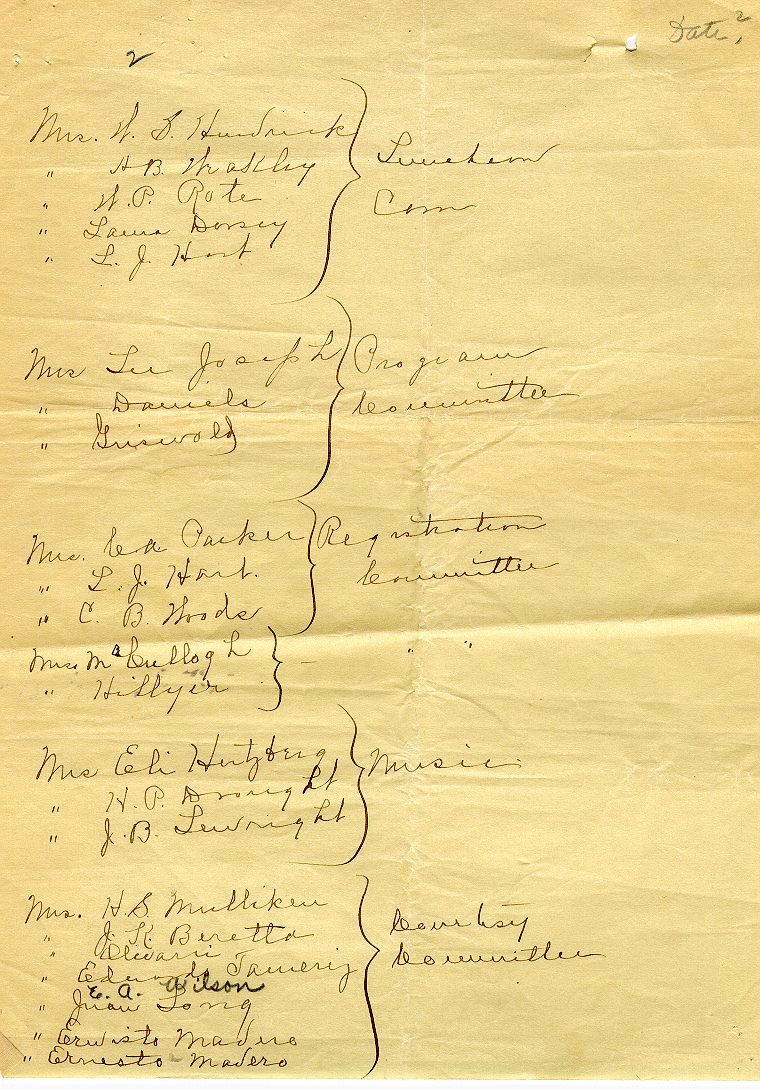 Date?
2
Mrs. W. S. Hendrick
" H B. Weakley
" W. P. Rote
" Laura Dorsey
" L. J. Hart
Luncheon
Com
Mrs Lee Joseph
" Daniels
" Griswold
Program
Committee
Mrs. Ed Parker
" L. J. Hart.
" C. B. Woods
Registration
Committee
Mrs McCullogh
" Hillyer
– " "
Mrs Eli Hertzberg
" H. P. Drought
" J. B. Lewright
Music
Mrs. H. S. Mulliken
" J. K. Beretta
"
" Eduardo Tameriz
E. A. Wilson
" Juan Long
" Erwisto Madero
" Ernesto Madero
Courtesy
Committee